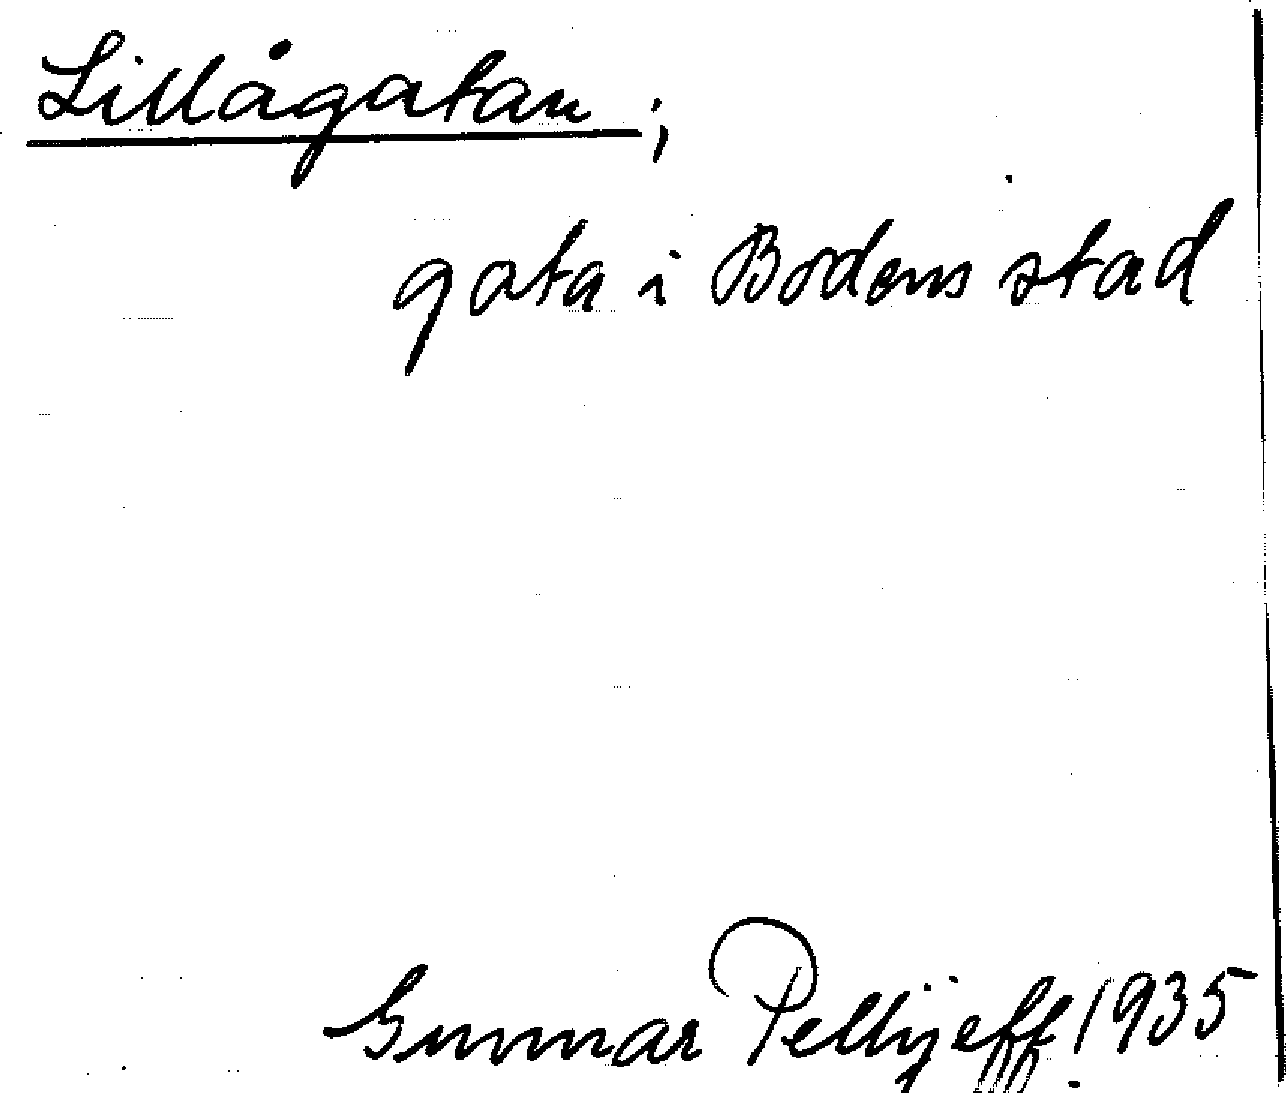 Lillågatan ;
gata i Bodens stad
Gunnar Pellijeff 1935